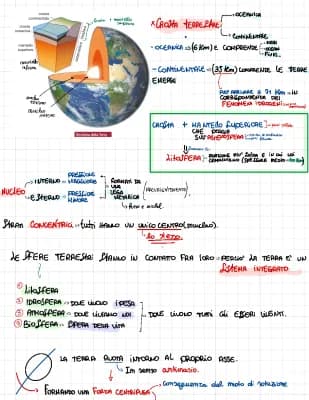 crosta
mantello
mantello
inferiore
nucleo
esterno
nucleo
interno
Struttura della Terra
* CROSTA TERRESTRE
OCEANICA
CONTINENTALE
- OCEANICA = (6 Km) E COMPRENDE
MARI
OCEANI
FIUMI
- CONTINENTALE = (35 Km) COMPRENTE LE TERRE
EMERSE
IN
CORRISPONDENZA DEI
FENOMENI OROGENI
CROSTA + MANTELLO SUPERIORE
CHE POGGIA
SULL'ASTENOSFERA
LITOSFERA
NUCLEO
INTERNO = PRESSIONE MAGGIORE
ESTERNO = PRESSIONE MINORE
FORMATI DA
UNA
LEGA
METALLICA
(PREVALENTEMENTE)
ferro e nichel.
STRATI CONCENTRICI = tutti HANNO UN UNICO CENTRO (NUCLEO).
lo stesso.
LE SFERE TERRESTRI STANNO IN CONTATTO FRA LORO = PERCIÒ LA TERRA E' UN
SISTEMA INTEGRATO
① LITOSFERA
② IDROSFERA = DOVE VIVONO I PESCI
③ ATMOSFERA = DOVE VIVIAMO NOI
④ BIOSFERA = SFERA DELLA VITA
DOVE VIVONO TUTTI GLI ESSERI VIVENTI.
LA TERRA RUOTA INTORNO AL PROPRIO ASSE.
In senso antiorario.
FORMANDO UNA FORZA CENTRIFUGA
conseguenza del moto di rotazione